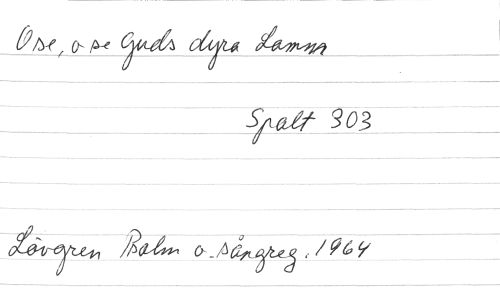 O se, o se Guds dyra Lamm
Spalt 303
Lövgren Psalm o. sångreg. 1964